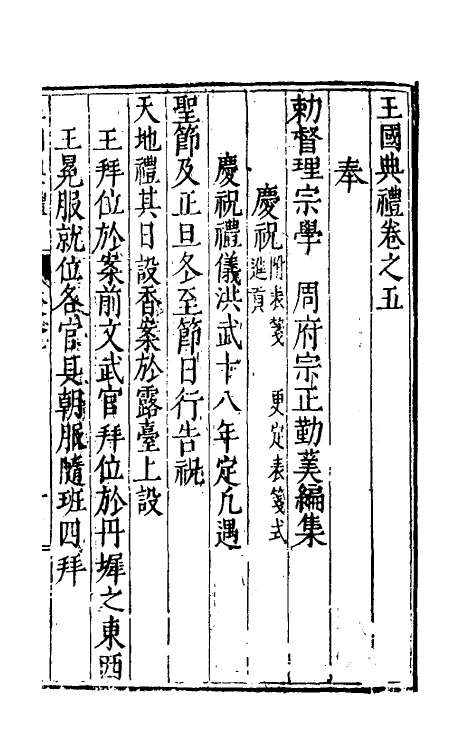 王國典禮卷之五
奉
勅督理宗學 周府宗正勤羙編集
慶祝附表箋 更定表箋式 進貢
慶祝禮儀洪武十八年定凡遇
聖節及正旦冬至節日行告祝
天地禮其日設香案於露臺上設
王拜位於案前文武官拜位於丹墀之東西
王冕服就位各官具朝服隨班四拜